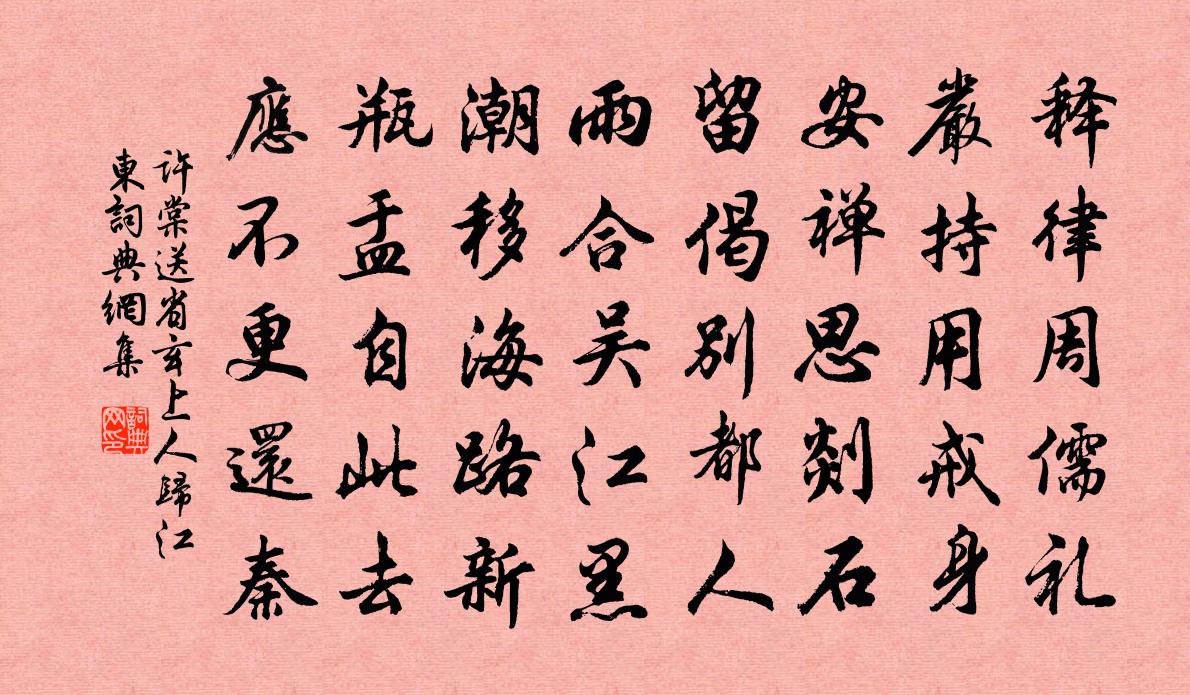 释律周儒礼
嚴持用戒身
安禅思剡石
留偈別都人
雨合吴江黑
潮移海路新
瓶盂自此去
應不更還秦
许棠送省玄上人歸江
東詞典網集
詞典网印